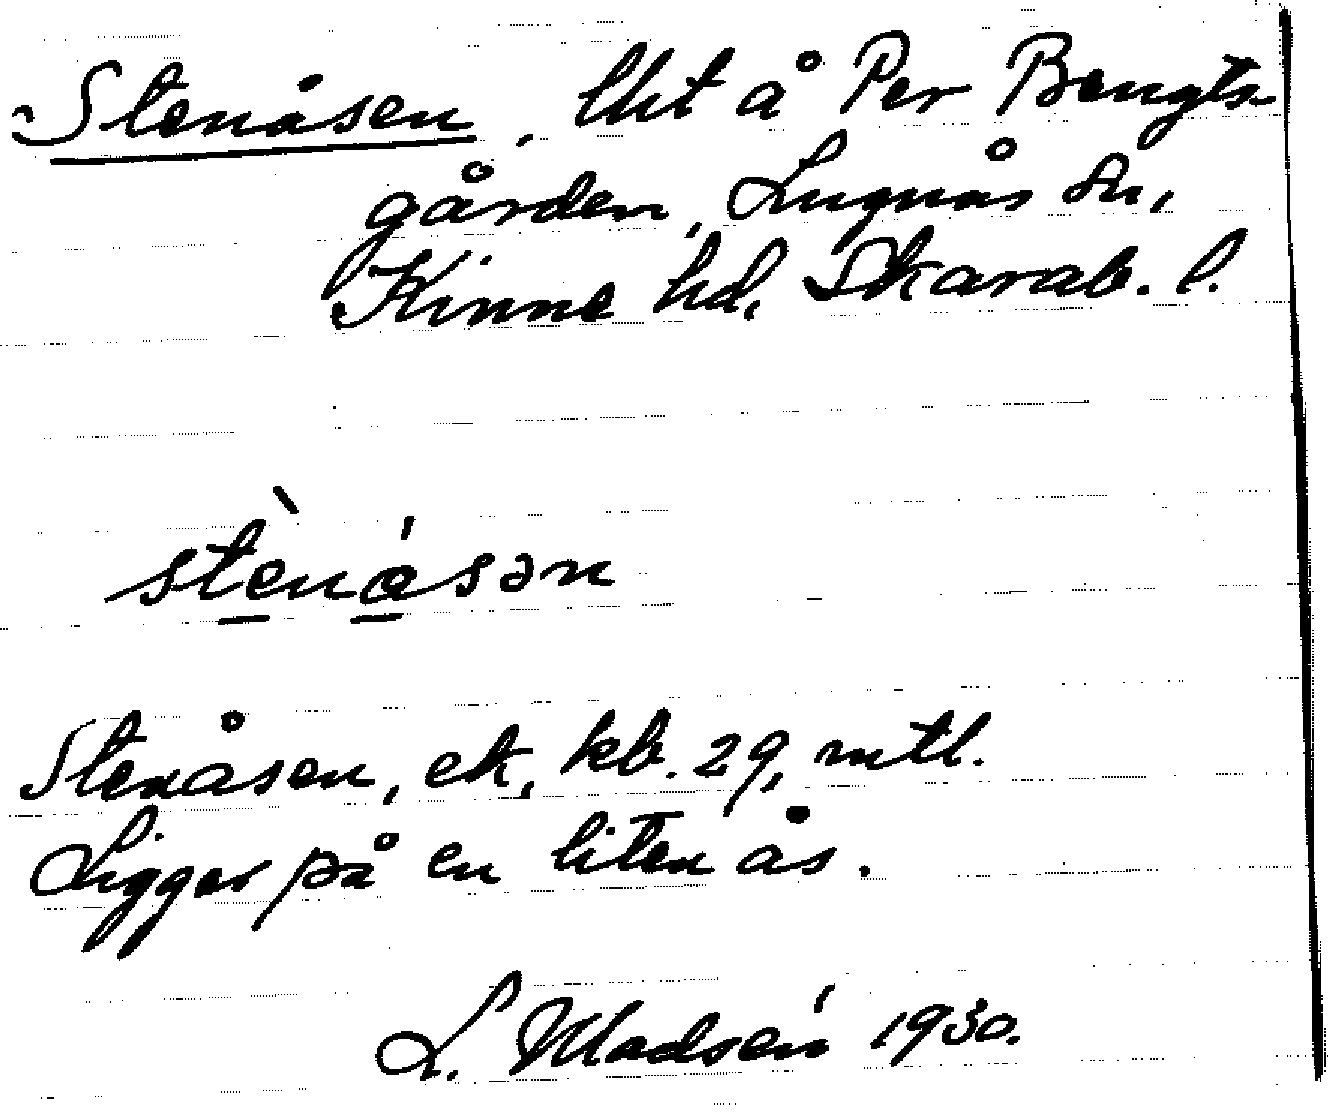 Stenåsen, lht å Per Bengts-
gården, Lugnås sn,
Kinne hd, Skarab. l.
stènásən
Stenåsen, ek, kb. 29, mtl.
Ligger på en liten ås.
L. Madsén 1930.